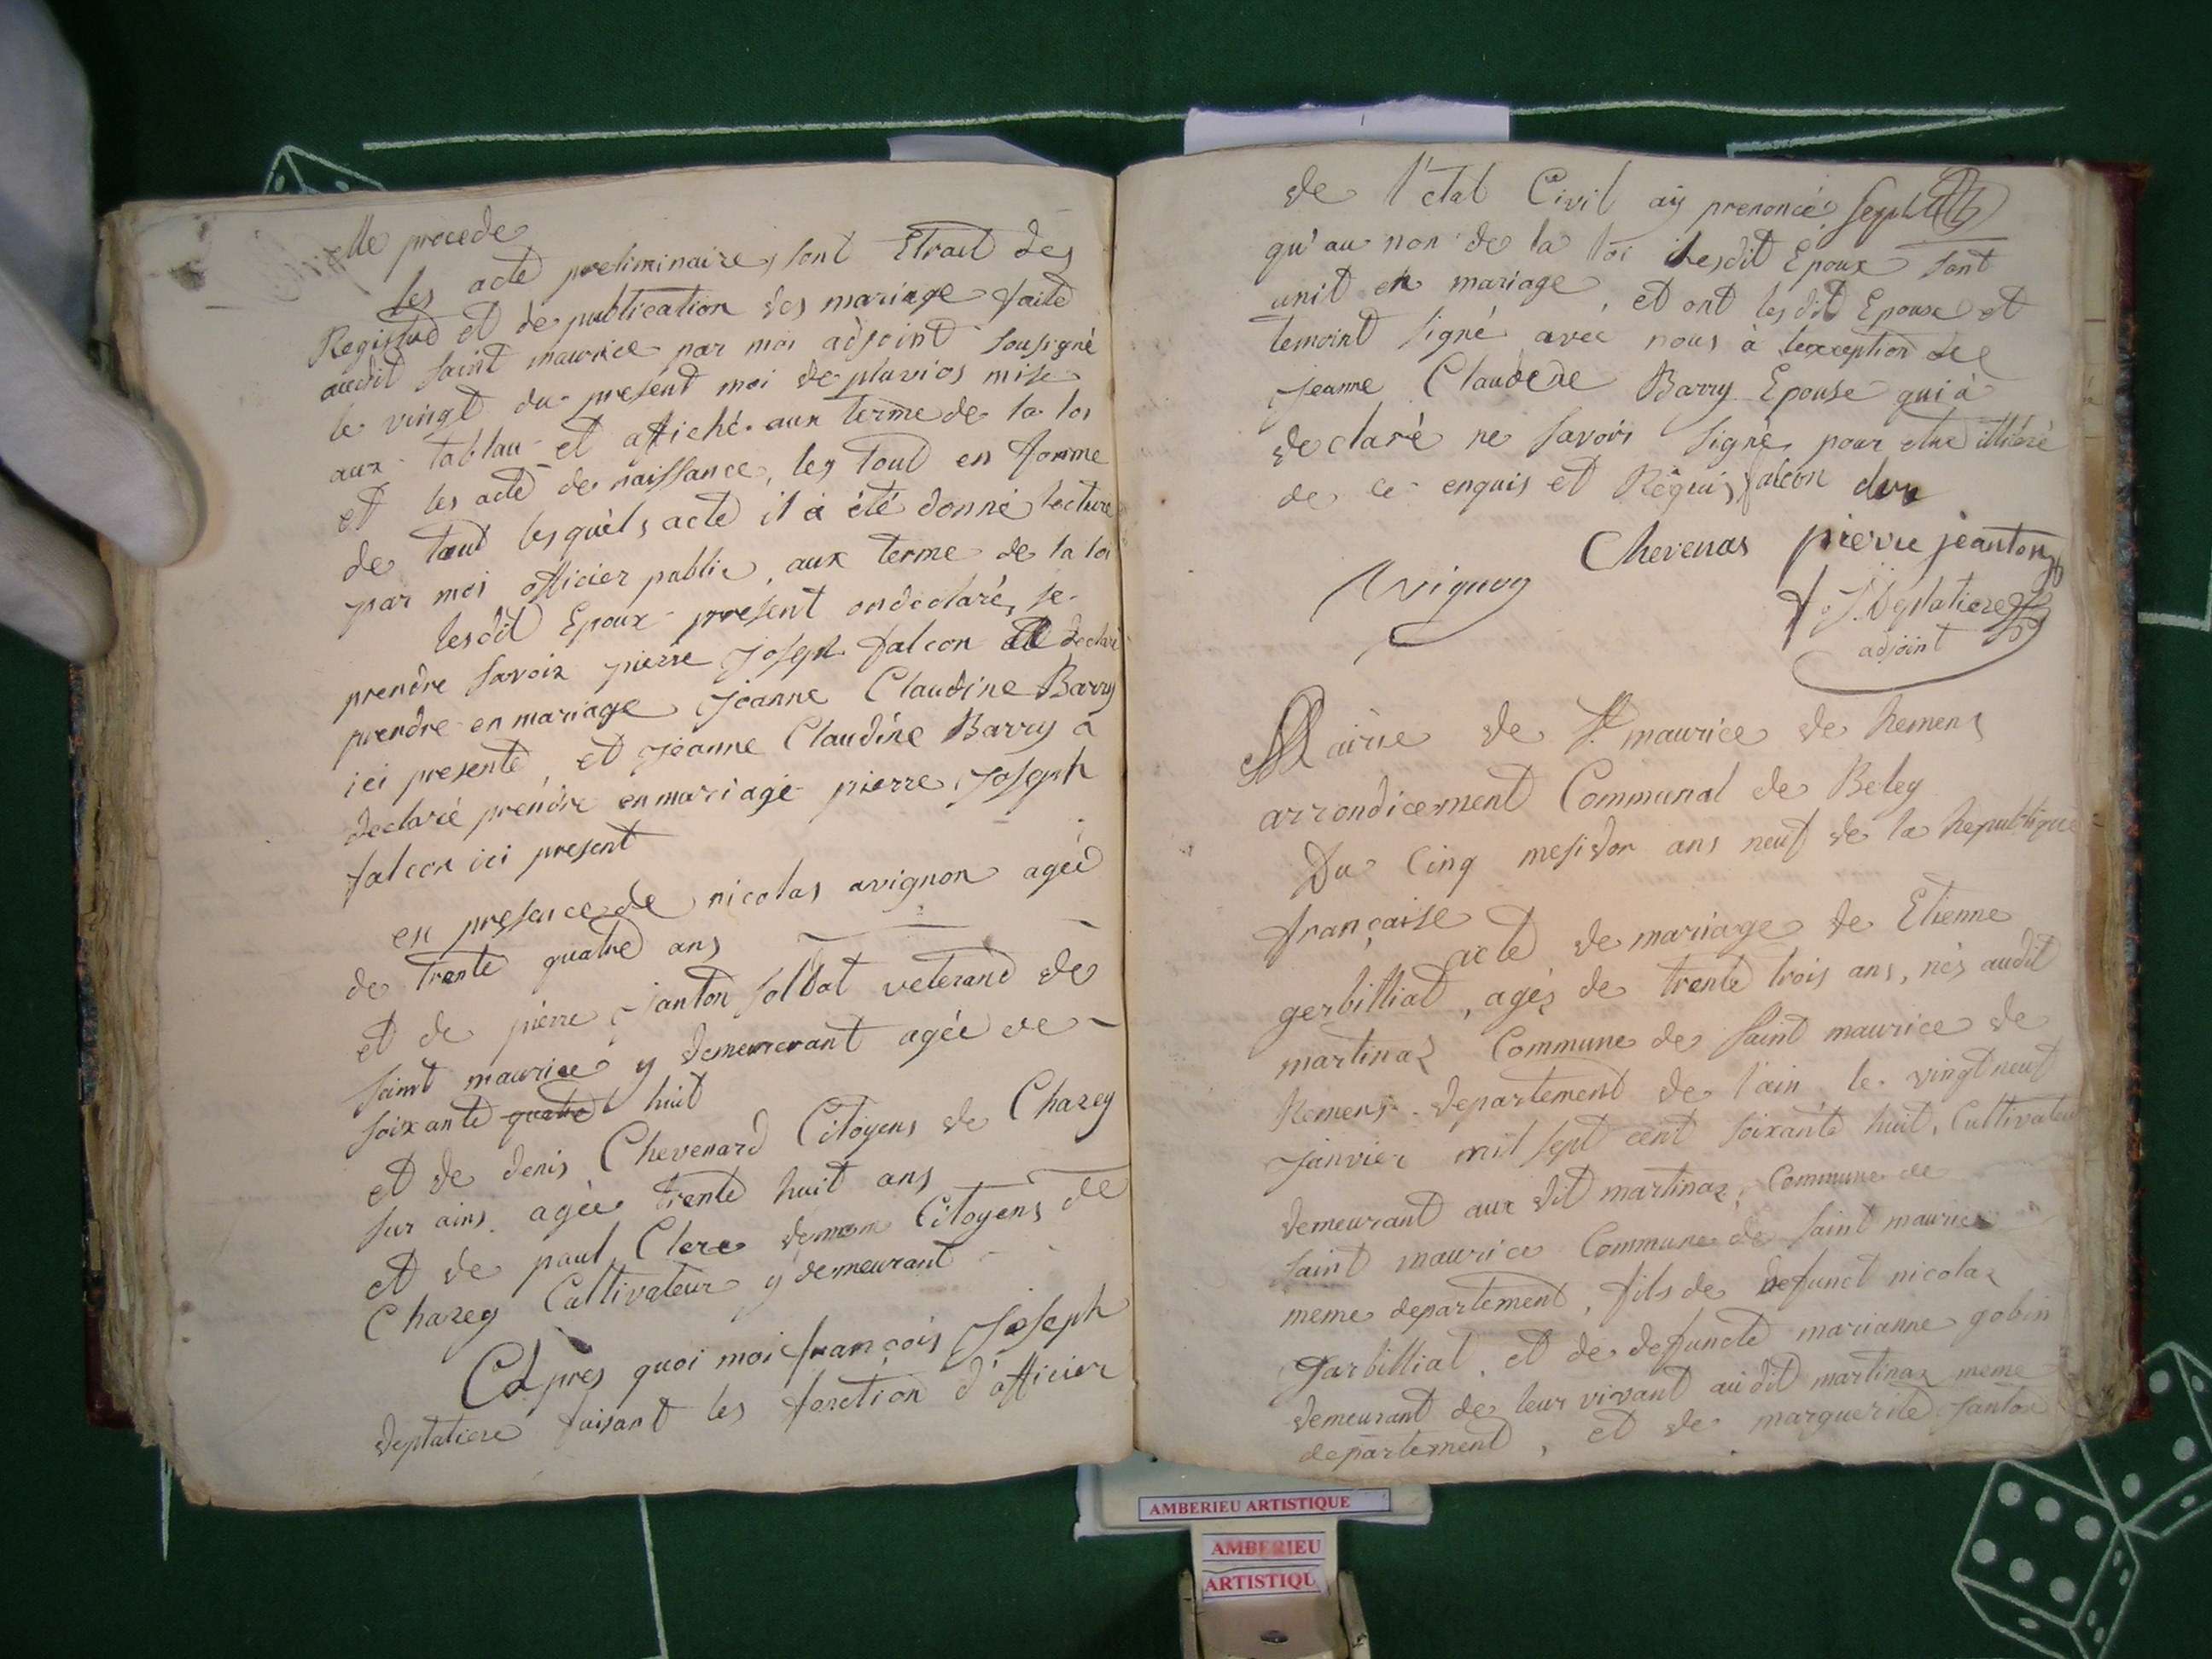 elle procede
les acte preliminaires, sont Etrait des
Registred et de publication des mariage faite
audit saint maurice par moi adjoint sousigné
le vingt du present moi de pluvios mise
aux tablau et affiché aux terme de la loi
et les acte de naissance, les tout en forme
de tout lesquèls acte il à été donné lecture
par moi officier public, aux terme de la loi
lesdit Epoux present ondeclaré, se
prendre savoir pierre Joseph falcon declaré
prendre en mariage Jeanne Claudine Barry
ici presente, et Jeanne Claudine Barry à
declaré prendre en mariage pierre Joseph
falcon ici present
en presence de nicolas avignon ageé
de trente quatre ans
et de pierre Janton soldat veterand de
saint maurice y demeurerant ageé de
soixante quatre huit
et de denis Chevenard Citoyens de Chazey
sur ains ageé trente huit ans
et de paul Clere Citoyens de
Chazey Cultivateur y demeurant
Apres quoi moi françois Joseph
deplatiere faisant les fonction d'officier
de l'etat Civil aÿ prenoncé
qu'au non de la loi lesdit Epoux sont
unit en mariage, et ont lesdit Epoux et
temoint signé avec nous à lexception de
Jeanne Claudene Barry Epouse qui à
declaré ne savoir signé pour etre illitéré
de ce enquis et Requis falcon
Chevenas pierre jeanton
Avignon
f. J. Deplatiere
adjoint
Mairie de St maurice de Remens
arrondicement Communal de Beley
Du Cinq mesidor ans neuf de la Republique
française
acte de mariage de Etienne
gerbilliat, agés de trente trois ans, nès audit
martinaz Commune de Saint maurice de
Remens departement de l'ain le vingt neuf
Janvier mil sept cent soixante huit, Cultivateur
demeurant aux dit martinaz, Commune de
saint maurice Commune de saint maurice
meme departement, fils de defunct nicolaz
Garbilliat et de defuncte marianne gobin
demeurant de leur vivant audit martinaz meme
departement, et de marguerite Janton